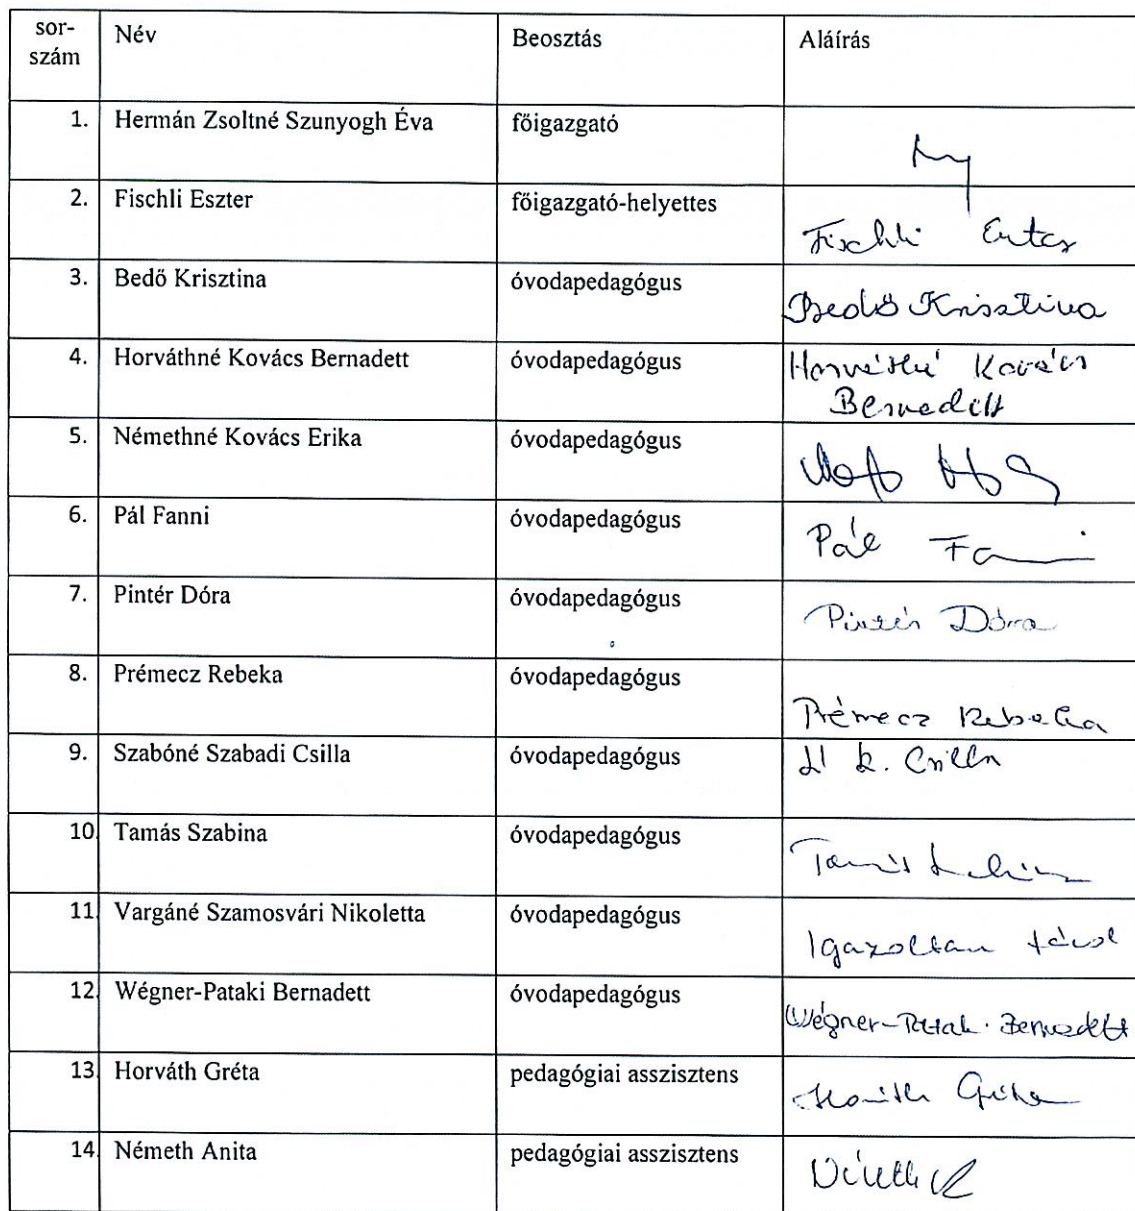 sor-
szám
Név
Beosztás
Aláírás
1. Hermán Zsoltné Szunyogh Éva főigazgató
2. Fischli Eszter főigazgató-helyettes
Fischli Eszter
3. Bedő Krisztina óvodapedagógus
Bedő Krisztina
4. Horváthné Kovács Bernadett óvodapedagógus Horváthné Kovács
Bernadett
5. Némethné Kovács Erika óvodapedagógus
6. Pál Fanni óvodapedagógus
Pál Fanni
7. Pintér Dóra óvodapedagógus
Pintér Dóra
8. Prémecz Rebeka óvodapedagógus
Prémecz Rebeka
9. Szabóné Szabadi Csilla óvodapedagógus Csilla
10. Tamás Szabina óvodapedagógus
Tamás Szabina
11. Vargáné Szamosvári Nikoletta óvodapedagógus
Igazoltan távol
12. Wégner-Pataki Bernadett óvodapedagógus
Wégner-Pataki Bernadett
13. Horváth Gréta pedagógiai asszisztens
Horváth Gréta
14. Németh Anita pedagógiai asszisztens
Németh